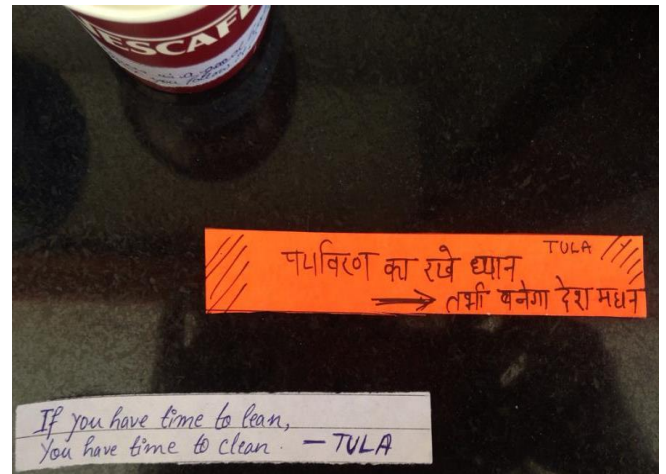 NESCAFÉ
TULA
पर्यावरण का रखे ध्यान
तभी बनेगा देश महान
If you have time to lean,
You have time to clean. — TULA